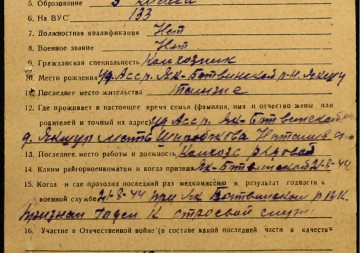 5. Образование 3 класса
6. На ВУС 133
7. Должностная квалификация Нет
8. Военное звание Нет
9. Гражданская специальность Колхозник
10. Место рождения Уд Асср. Як-Ботьинской р-н
11. Последнее место жительства
12. Где проживает в настоящее время семья (фамилия, имя и отчество жены или
родителей и точный их адрес) Уд Асср Як-Ботьинской
д. Якшур мать Широбокова Наталия
13. Последнее место работы и должность Колхоз рядовой
14. Каким райгорвоенкоматом и когда призван Як-Ботьинской 21-8-44
15. Когда и где проходил последний раз медкомиссию и результат годности к
военной службе 21-8-44 при Як Ботьинском РВК
признан годен к строевой службе
16. Участие в Отечественной войне (в составе какой последней части и качестве